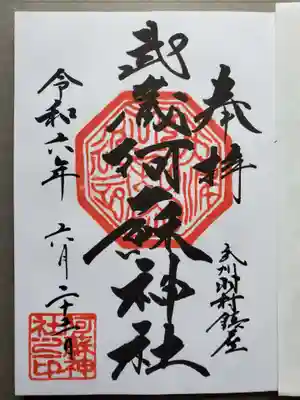 奉拝
武州羽村鎮座
武蔵阿蘇神社
令和六年
六月二十三日